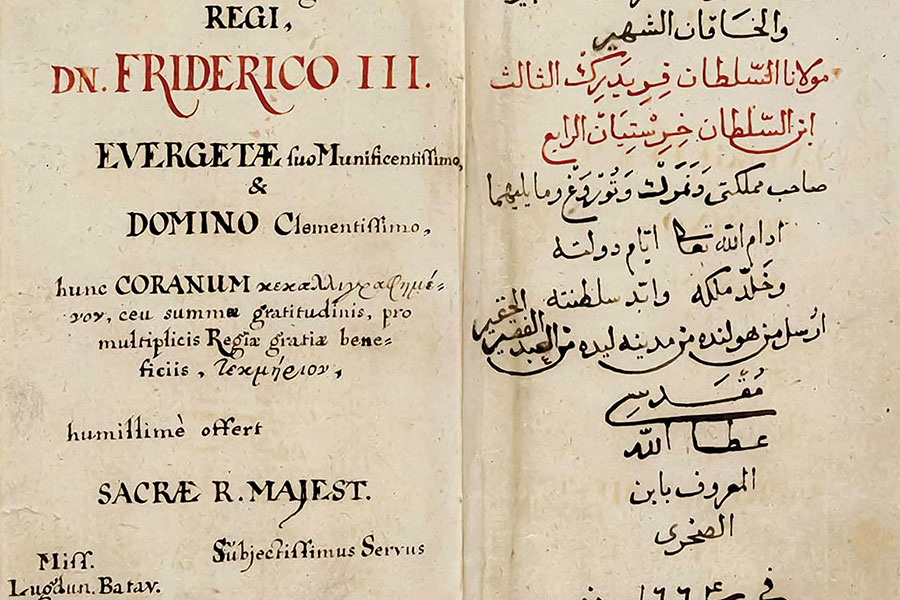 REGI,
DN. FRIDERICO III.
EVERGETÆ suo Munificentissimo,
&
DOMINO Clementissimo,
hunc CORANUM κεκαλλιγραφημέ-
νον, ceu summæ gratitudinis, pro
multiplicis Regiæ gratiæ bene-
ficiis, τεκμήριον,
humillimè offert
SACRÆ R. MAJEST.
Subjectissimus Servus
Miss.
Lugdun. Batav.
والخاقان الشهير
مولانا السّلطان فريدرك الثالث
ابن السّلطان خرستيان الرابع
صاحب مملكتى دنمرك ونوروغ وما يليهما
ادام الله تعا ايّام دولته
وخلّد ملكه وابّد سلطنته
ارسل من هولنده من مدينه ليده من العبد الفقير الحقير
مقدسي
عطا الله
المعروف بابن
الصخرى
في ١٦٦٤